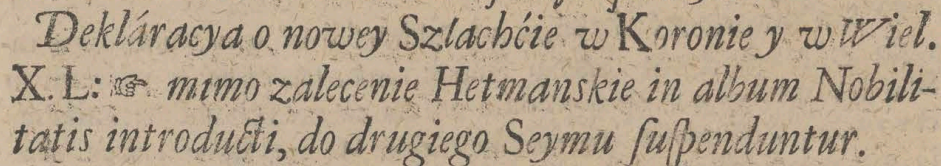 Deklárácya o nowey Szlachćie w Koronie y w Wiel.
X. L: ☞ mimo zalecenie Hetmanskie in album Nobili-
tatis introducti, do drugiego Seymu ſuſpenduntur.